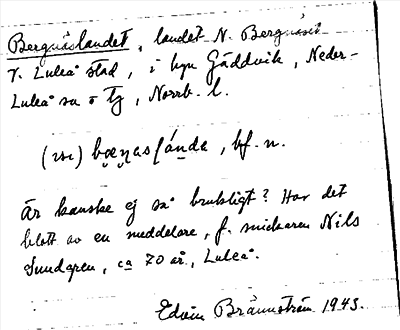 Bergnäslandet, landet N. Bergnäset
V. Luleå stad, i byn Gäddvik, Neder-
Luleå sn o tg, Norrb. l.
(ɯ) bæ̣ṇasḷánda, bf. n.
Är kanske ej så brukligt? Har det
blott av en meddelare, f. snickaren Nils
Sundgren, ca 70 år, Luleå.
Edvin Brännström 1943.